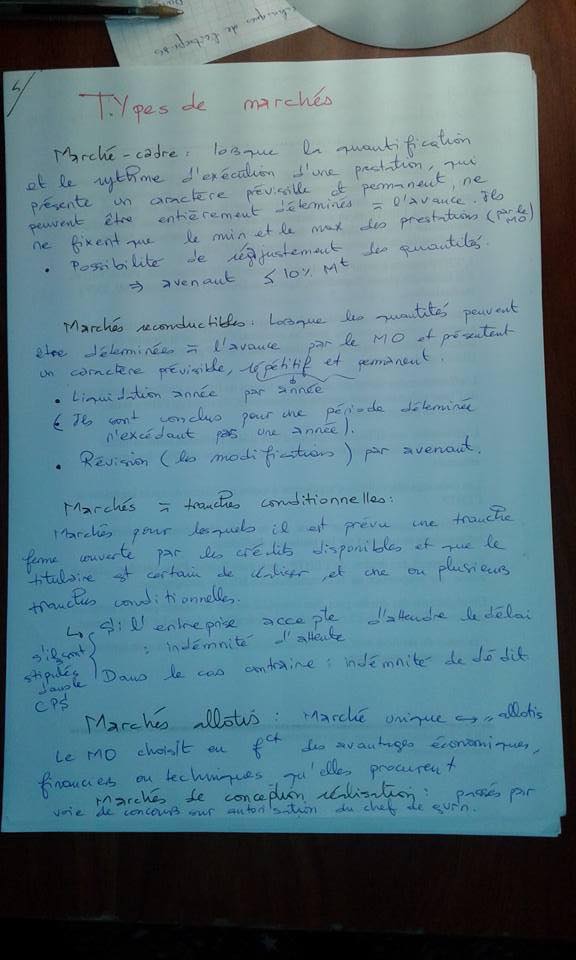 chaiques de
4/
Types de marchés
Marché-cadre : lorsque la quantification
et le rythme d'exécution d'une prestation, qui
présente un caractère prévisible et permanent, ne
peuvent être entièrement déterminés à l'avance. Ils
ne fixent que le min et le max des prestations (par le MO)
• Possibilité de réajustement des quantités.
⇒ avenant ≤ 10% Mt
Marchés reconductibles : Lorsque les quantités peuvent
être déterminées à l'avance par le MO et présentent
un caractère prévisible, répétitif et permanent.
• Liquidation année par année
( Ils sont conclus pour une période déterminée
n'excédant pas une année).
• Révision (les modifications) par avenant.
Marchés à tranches conditionnelles :
Marchés pour lesquels il est prévu une tranche
ferme couverte par les crédits disponibles et que le
titulaire est certain de réaliser, et une ou plusieurs
tranches conditionnelles.
↳ Si l'entreprise accepte d'attendre le délai
: indémnité d'attente
s'ils sont stipulés dans le CPS
Dans le cas contraire : indémnité de dédit
Marchés allotis : Marché unique ↔ " allotis
Le MO choisit en fct des avantages économiques,
financiers ou techniques qu'elles procurent
Marchés de conception réalisation : passés par
voie de concours sur autorisation du chef de gvrn.